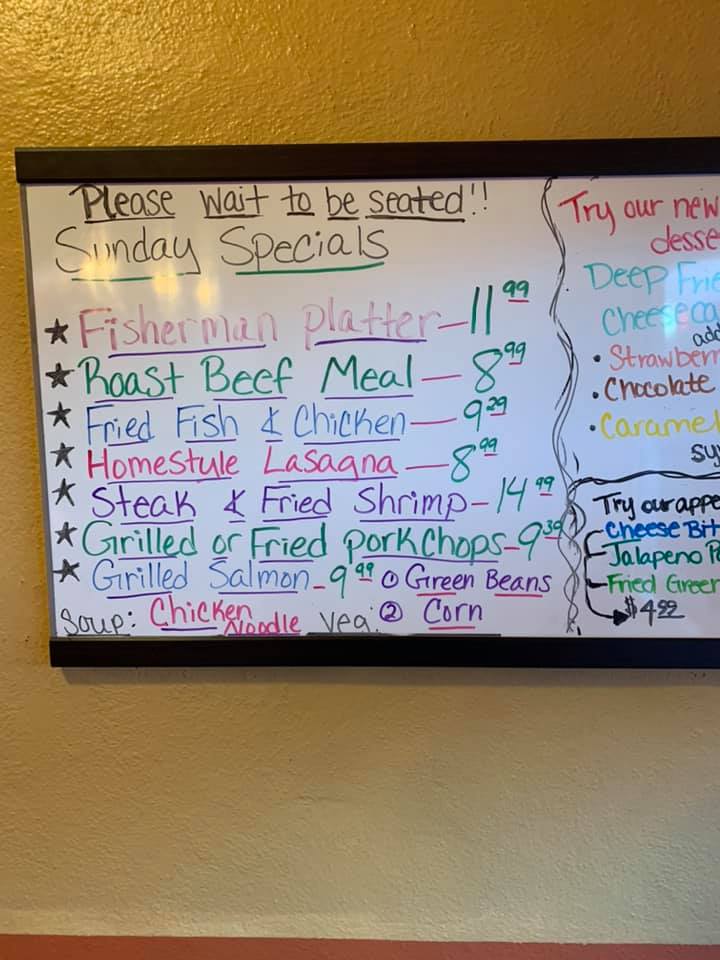 Please wait to be seated!!
Sunday Specials
★ Fisherman platter - 11.99
★ Roast Beef Meal - 8.99
★ Fried Fish & Chicken - 9.29
★ Homestyle Lasagna - 8.99
★ Steak & Fried Shrimp - 14.99
★ Grilled or Fried porkchops - 9
★ Grilled Salmon - 9.99 ① Green Beans
Soup: Chicken Noodle Veg: ② Corn
Try our new
desse
Deep Frie
Cheeseca
add
• Strawberr
• Chocolate
• Caramel
sy
Try our appe
Cheese Bit
Jalapeno P
Fried Green
$4.99